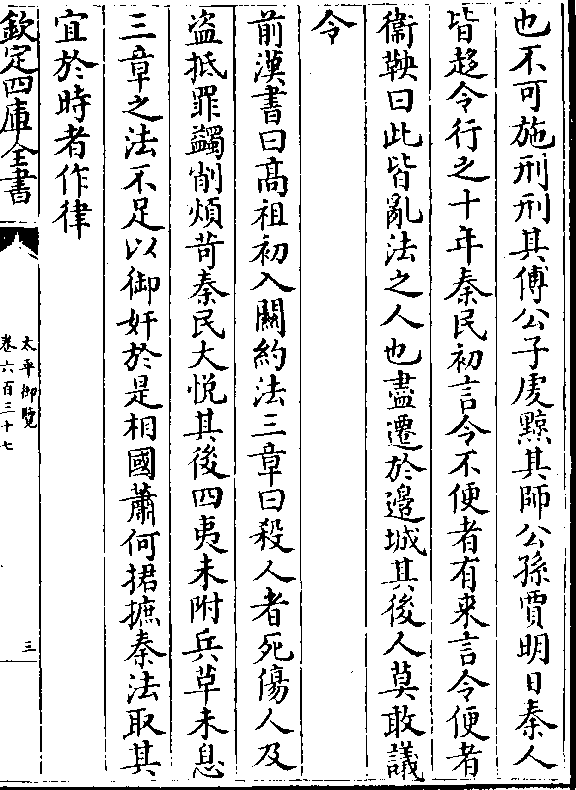 也不可施刑刑其傅公子虔黥其師公孫賈明日秦人
皆趍令行之十年秦民初言令不便者有来言令便者
衞鞅曰此皆亂法之人也盡遷於邉城其後人莫敢議
令
前漢書曰髙祖初入闗約法三章曰殺人者死傷人及
盗抵罪蠲削煩苛秦民大悦其後四夷未附兵革未息
三章之法不足以御奸於是相國蕭何捃摭秦法取其
宜於時者作律
欽定四庫全書
太平御覽
卷六百三十七
三